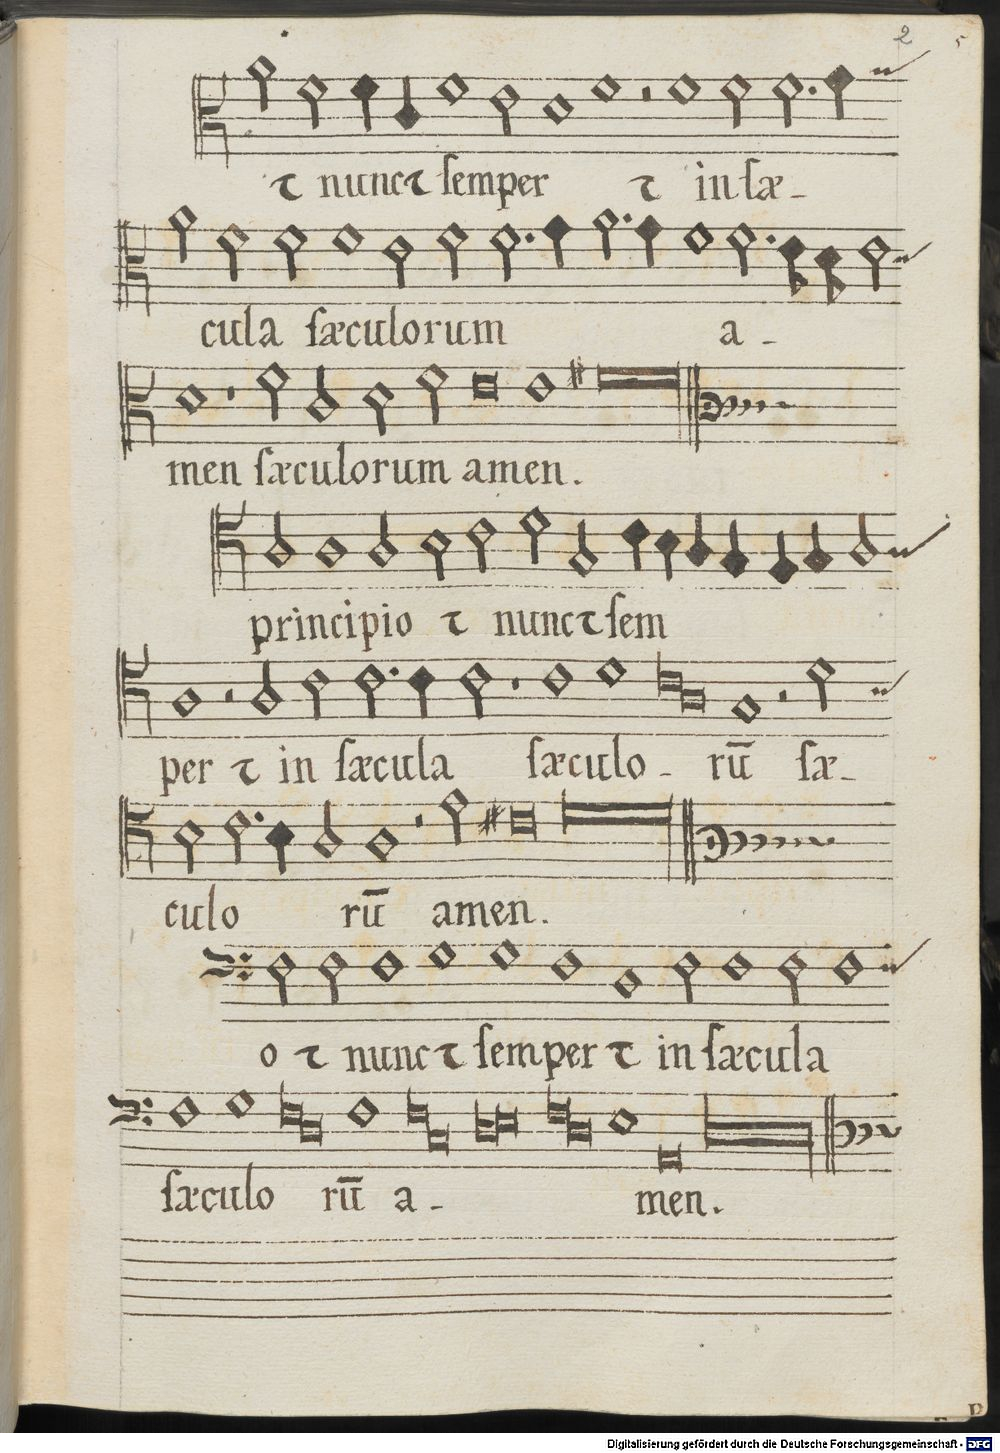 2 5
⁊ nunc ⁊ semper ⁊ in sæ-
cula sæculorum a-
men sæculorum amen.
principio ⁊ nunc ⁊ sem
per ⁊ in sæcula sæculo- rū sæ-
culo rū amen.
o ⁊ nunc ⁊ semper ⁊ in sæcula
sæculo rū a- men.
Digitalisierung gefördert durch die Deutsche Forschungsgemeinschaft - DFG